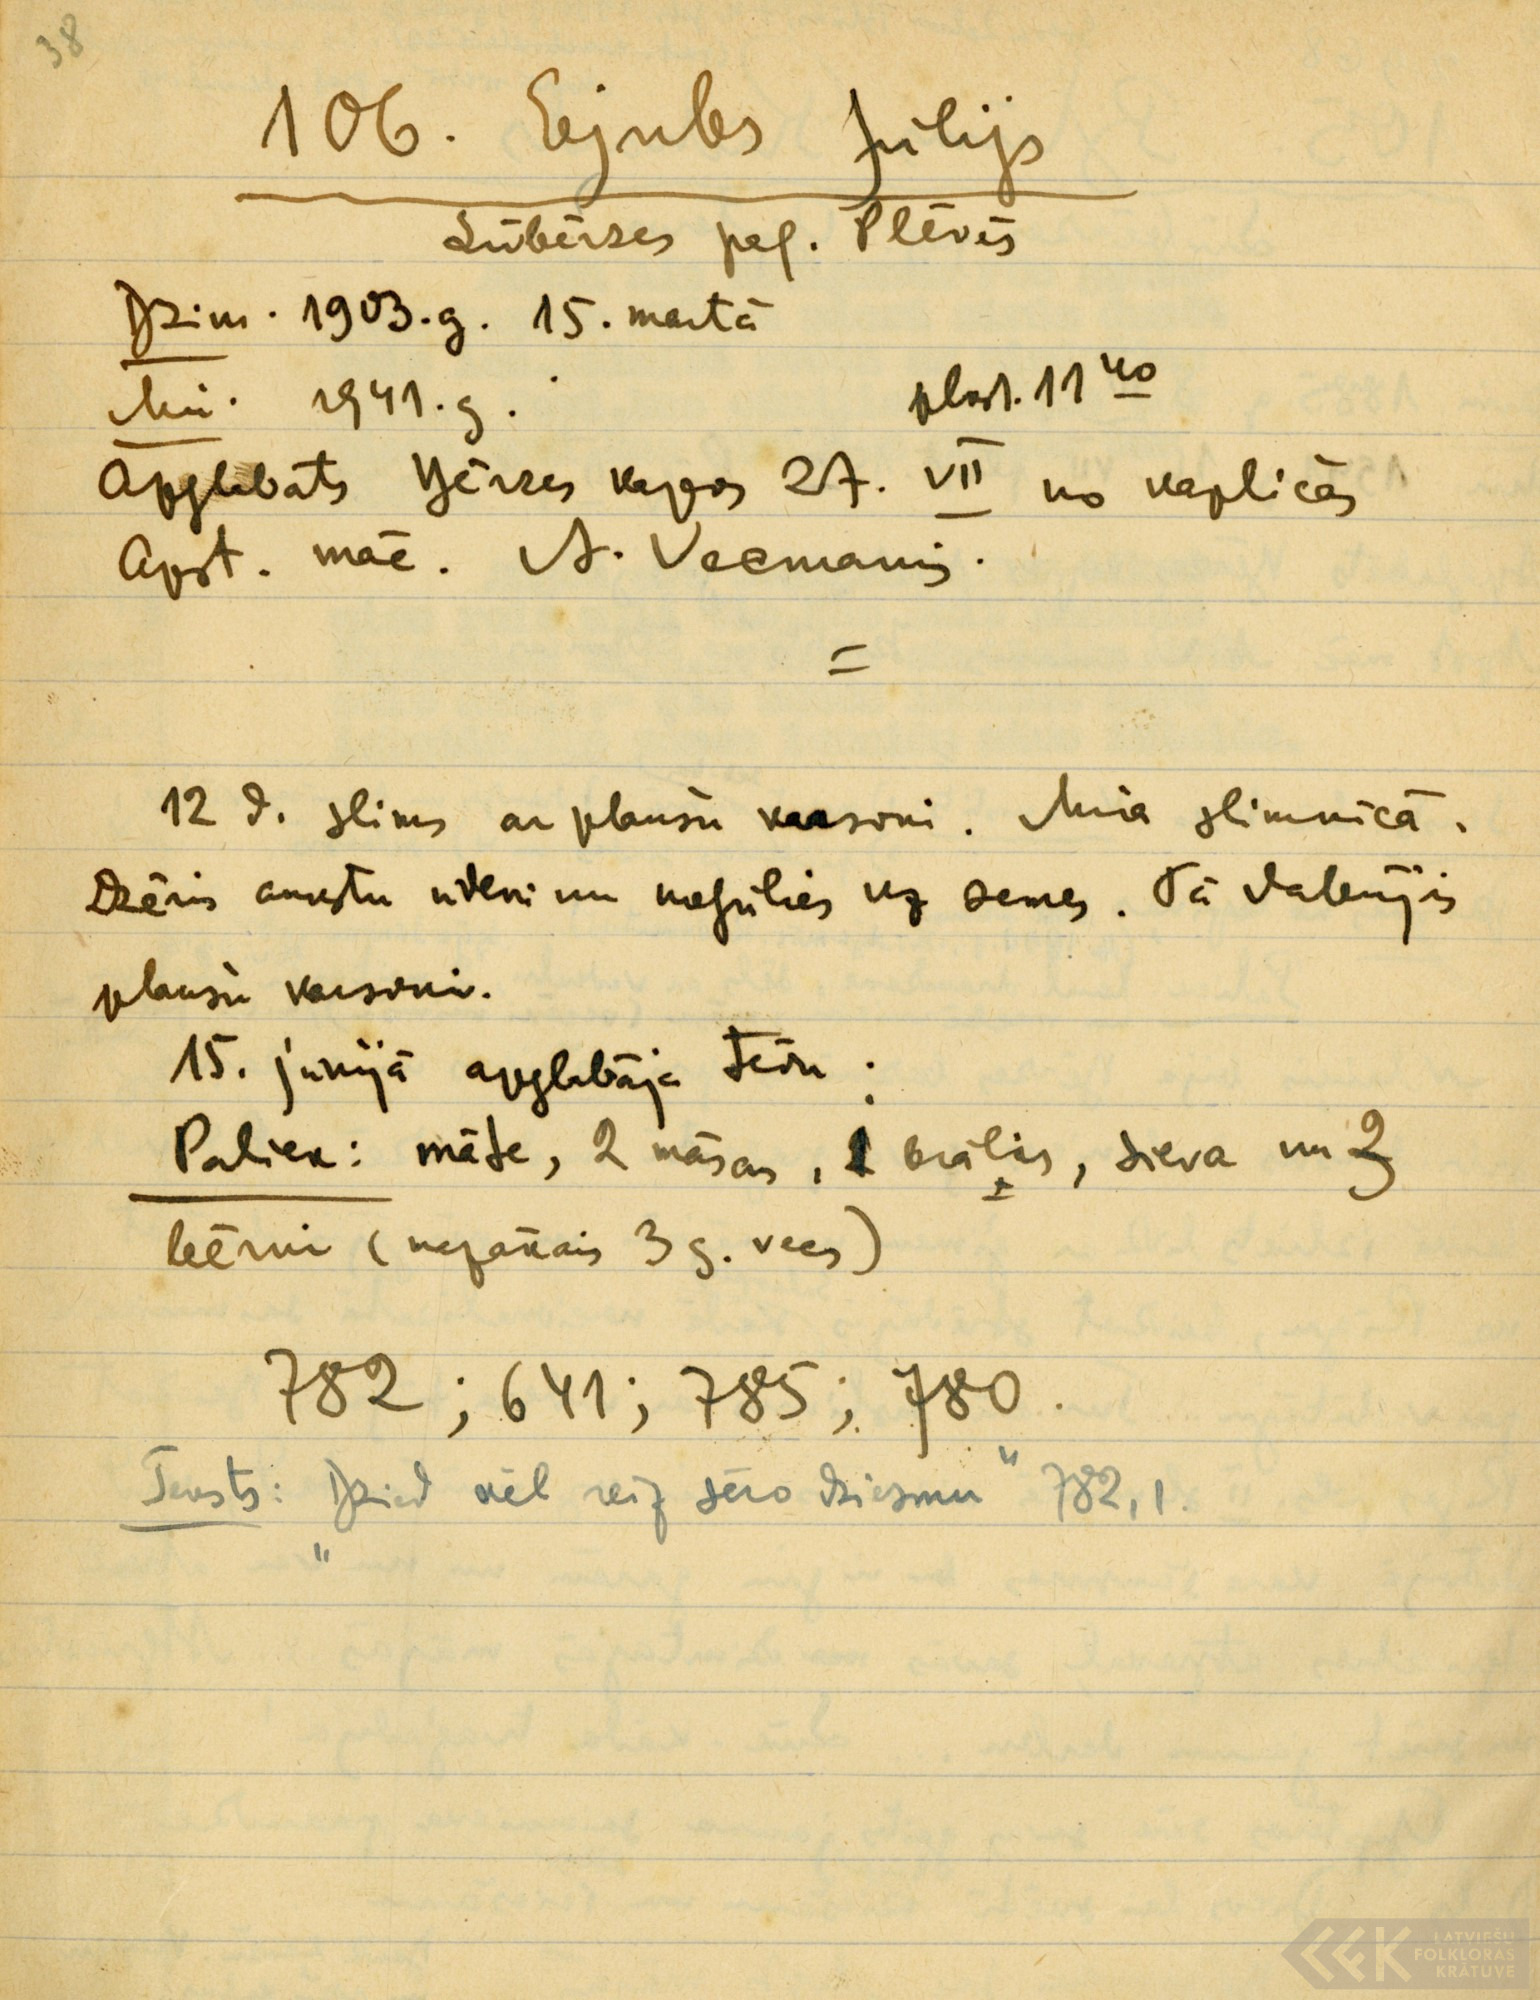 38
106. Eejubs Jūlijs
Lubērzes pag. Plēvēs
Dzim. 1903.g. 15. martā
Mir. 1941.g. plkst. 11 40
Apglabāts Bērzes kapos 27. VII no kapličas
Apst. māc. A. Vecmanis.
=
12 d. slims ar plaušu karsoni. Mira slimnīcā.
Dzēris aukstu ūdeni un nogūlies uz zemes. Tā dabūjis
plaušu karsoni.
15. jūnijā apglabāja tēvu;
Paliek: māte, 2 māsas, 1 brālis, sieva un 2
bērni (mazākais 3 g. vecs)
782; 641; 785; 780.
Teksts: "Dzied vēl reiz sēro dziesmu" 782,1.
LATVIEŠU
FOLKLORAS
KRĀTUVE